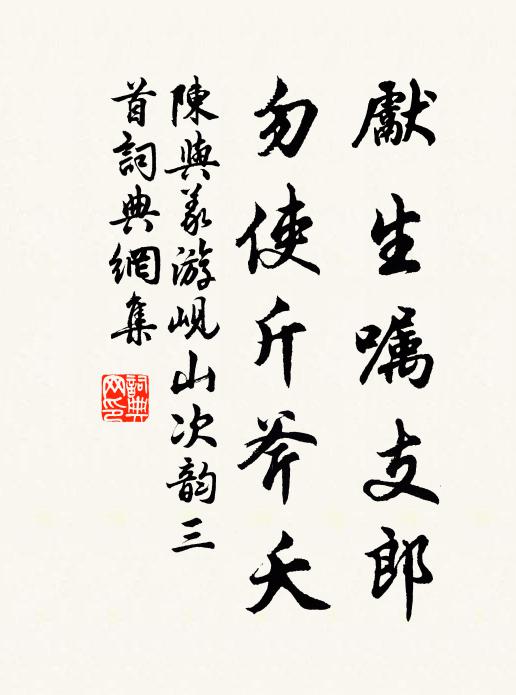 獻生嘱支郎
勿使斤斧夭
陳與義游峴山次韵三
首詞典網集
詞典
网印